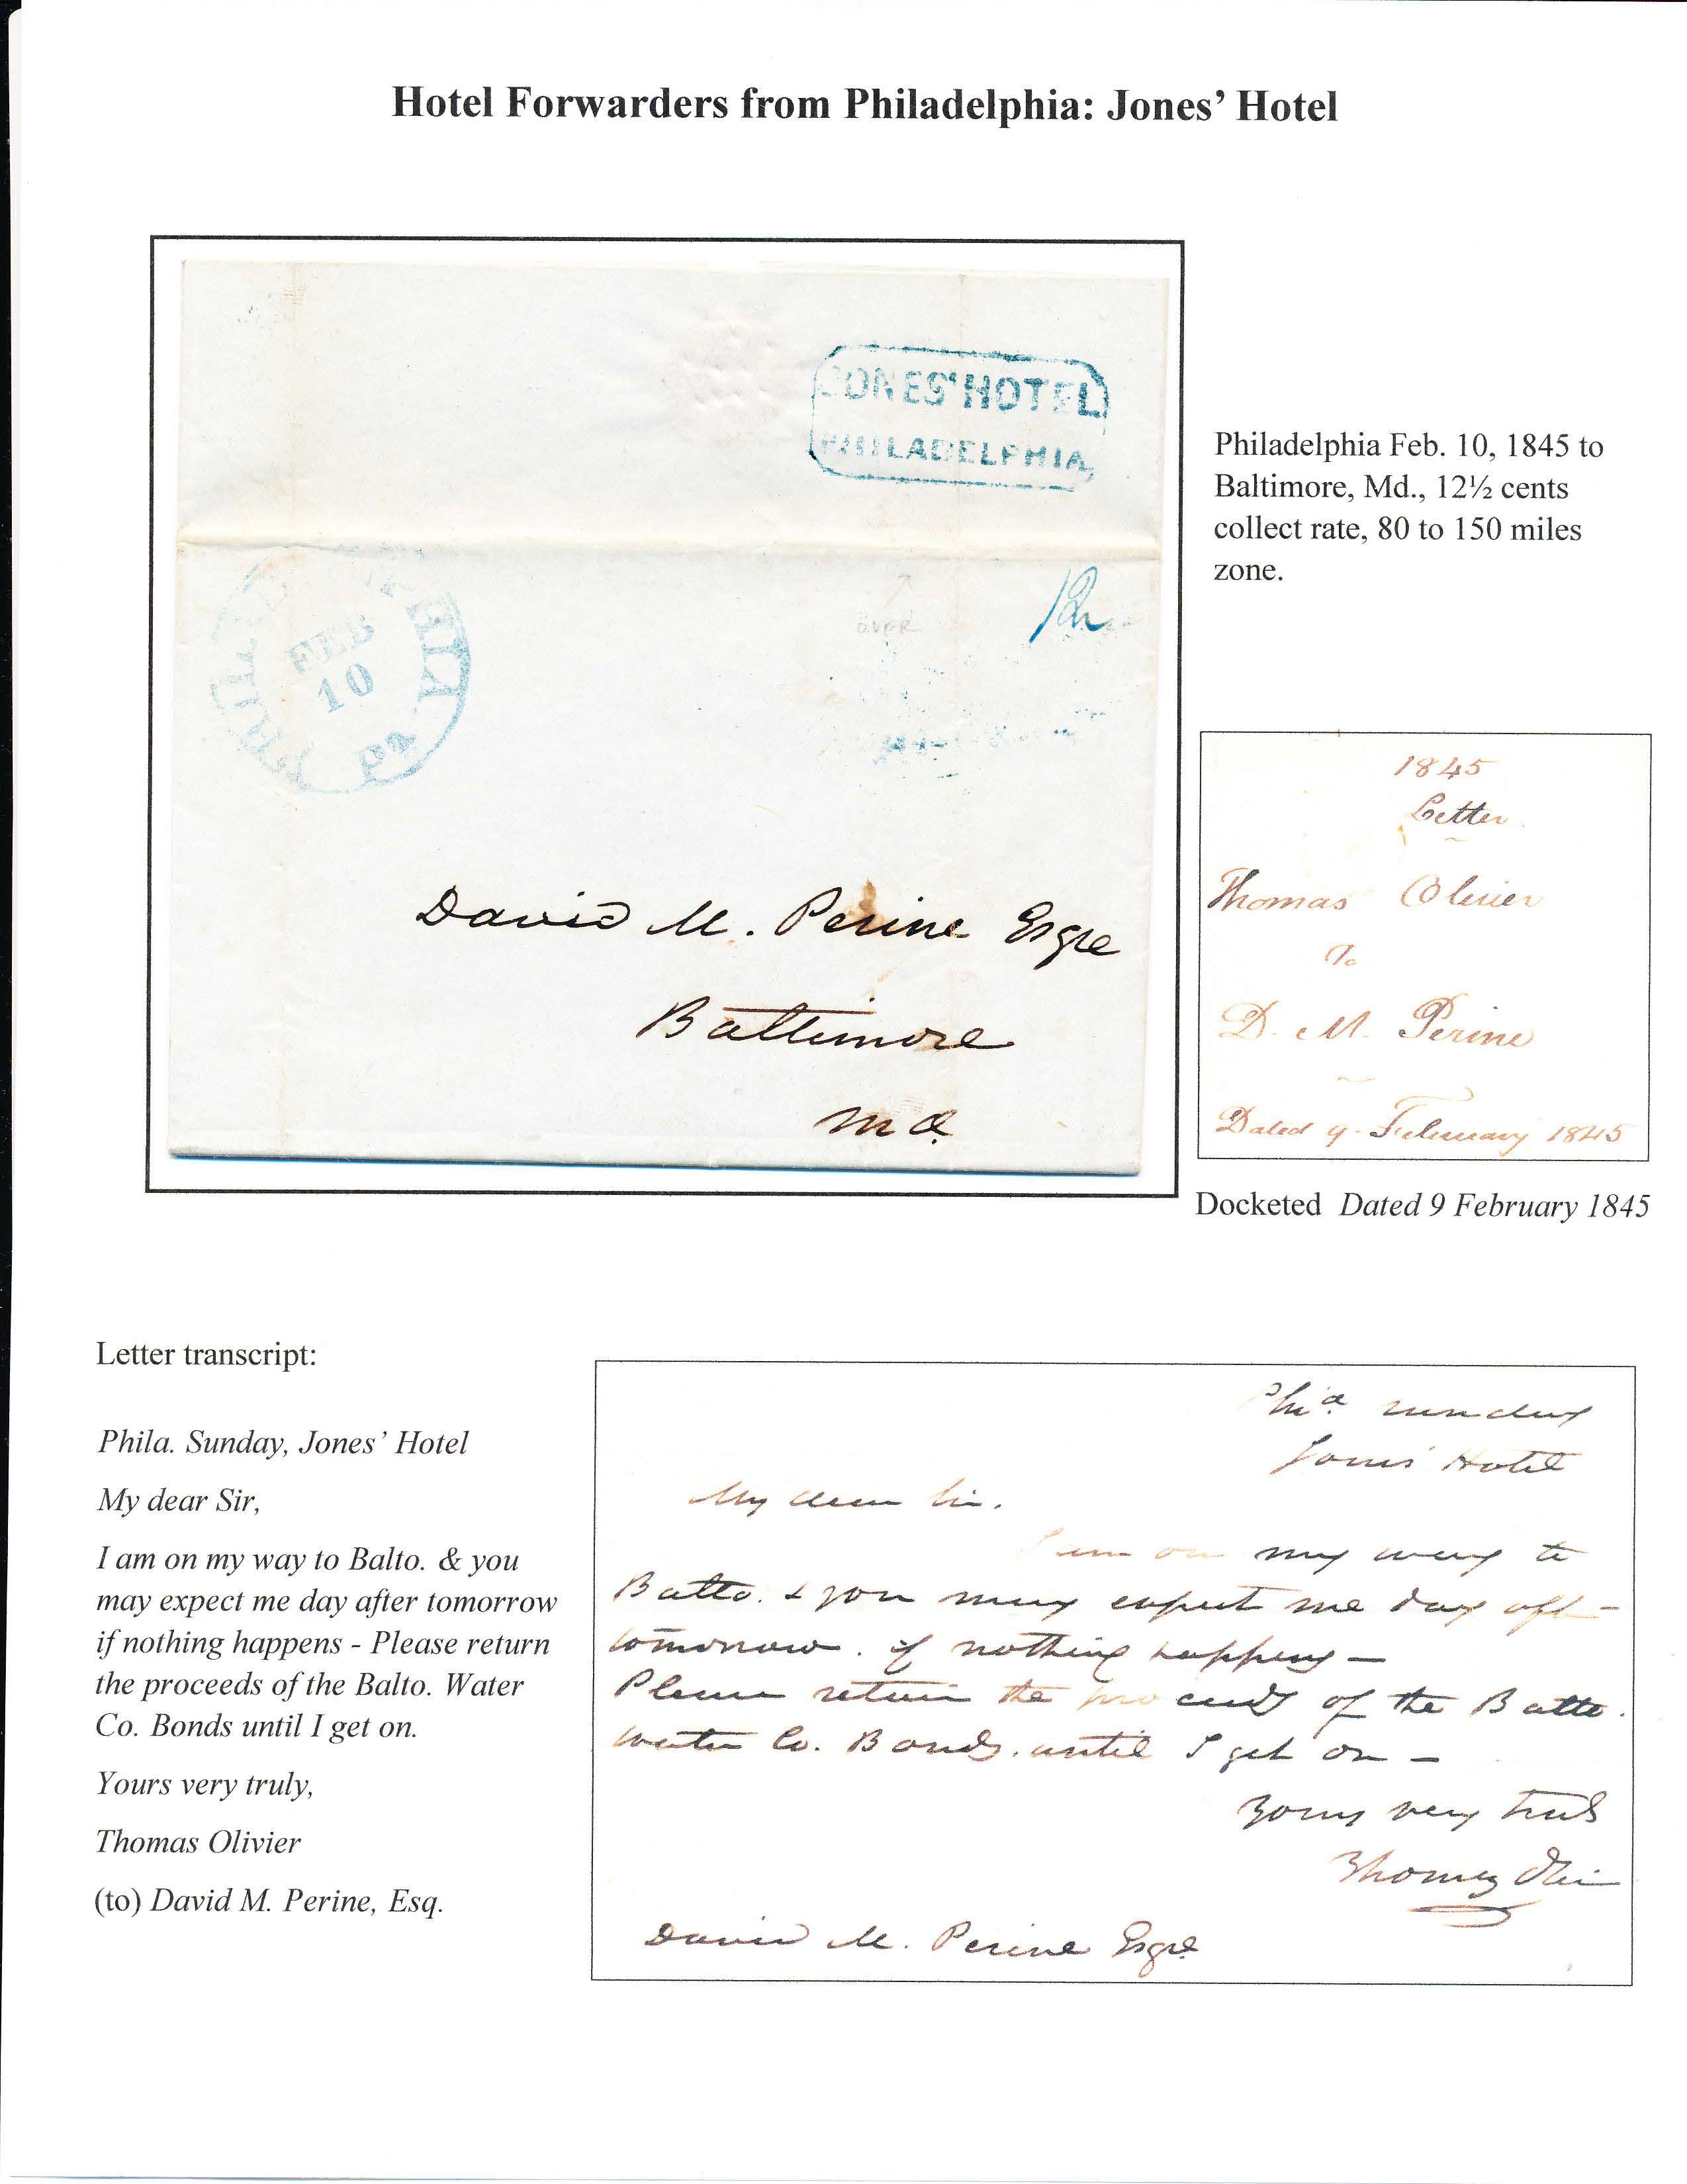 Hotel Forwarders from Philadelphia: Jones’ Hotel
JONES' HOTEL
PHILADELPHIA
Philadelphia Feb. 10, 1845 to
Baltimore, Md., 12½ cents
collect rate, 80 to 150 miles
zone.
OVER
12½
PHILADELPHIA
FEB
10
Pa
David M. Perine Esqre
Baltimore
Md.
1845
Letter
Thomas Olivier
To
D. M. Perine
Dated 9 February 1845
Docketed Dated 9 February 1845
Letter transcript:
Phila. Sunday, Jones’ Hotel
My dear Sir,
I am on my way to Balto. & you
may expect me day after tomorrow
if nothing happens - Please return
the proceeds of the Balto. Water
Co. Bonds until I get on.
Yours very truly,
Thomas Olivier
(to) David M. Perine, Esq.
Phia. sunday
Jones' Hotel
My dear Sir.
I am on my way to
Balto. & you may expect me day aft-
tomorrow. if nothing happens –
Please retain the proceeds of the Balto.
water Co. Bonds. until I get on –
Yours very truly
Thomas
David M. Perine Esqre